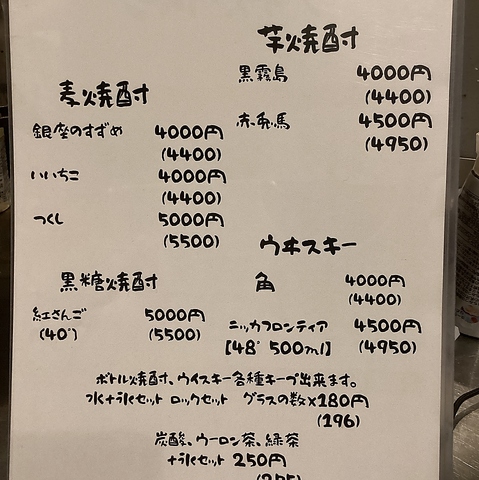 芋焼酎
黒霧島 4000円
(4400)
赤兎馬 4500円
(4950)
麦焼酎
銀座のすずめ 4000円
(4400)
いいちこ 4000円
(4400)
つくし 5000円
(5500)
ウヰスキー
角 4000円
(4400)
ニッカフロンティア 4500円
【48° 500ml】 (4950)
黒糖焼酎
紅さんご 5000円
(40°) (5500)
ボトル焼酎、ウイスキー各種キープ出来ます。
水+氷セット ロックセット グラスの数×180円
(196)
炭酸、ウーロン茶、緑茶
+氷セット 250円